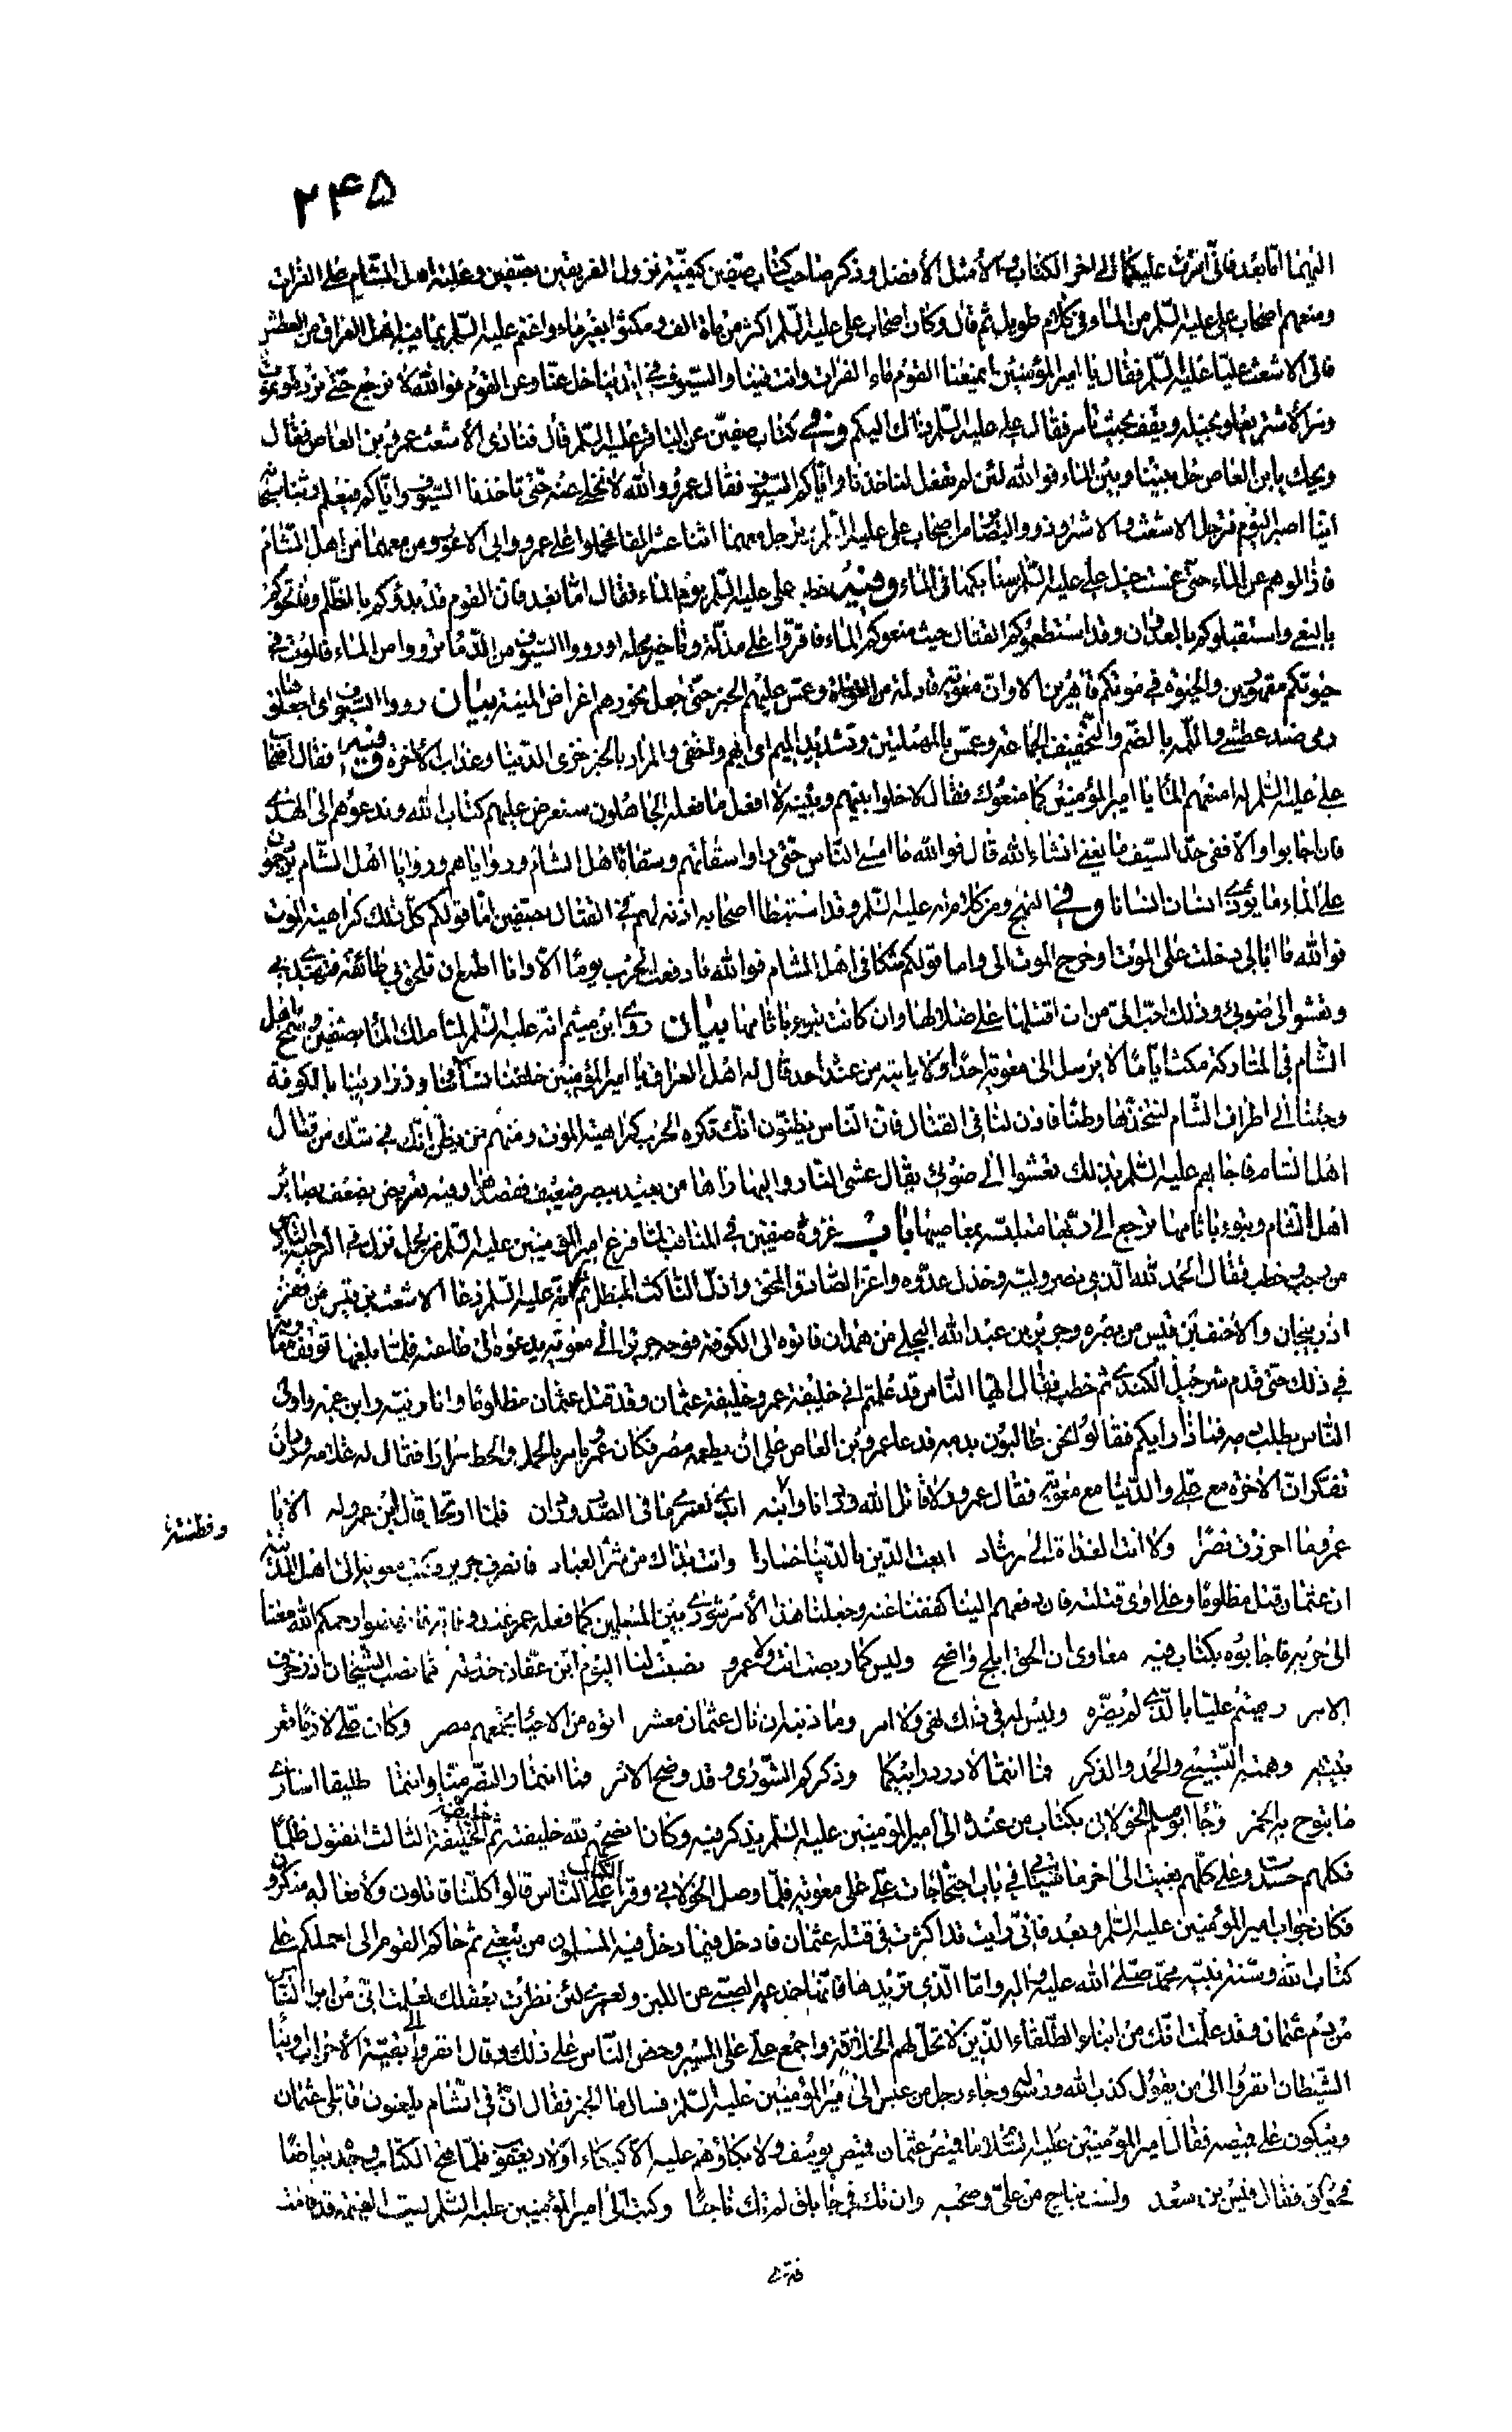 ۲۴۵
اليهما اما بعد فاني امرت عليكما الى اخر الكتاب الامثل الأفضل وذكر صاحب كتاب صفين كيفية نزول الفريقين بصفين وغلبة اهل الشام على الفرات
ومنعهم اصحاب علي عليه السلم من الماء في كلام طويل ثم قال وكان اصحاب علي عليه السلم اكثر من مائة الف ومكثوا بغير ماء واغتم عليه السلم بما فيه اهل العراق من العطش
فاتى الاشعث عليا عليه السلم فقال يا امير المؤمنين ايمنعنا القوم ماء الفرات وانت فينا والسيوف في ايدينا خل عنا وعن القوم فوالله لا نرجع حتى نرده او نموت
ومر الأشتر يعلو بخيله ويقف بحيث تأمر فقال علي عليه السلم ذلك اليكم وفي كتاب صفين عن الباقر عليه السلم قال فنادى الأشعث عمرو بن العاص فقال
ويحك يا بن العاص خل بيننا وبين الماء فوالله لئن لم تفعل لتاخذنا واياكم السيوف فقال عمرو والله لا نخلي عنه حتى تاخذنا السيوف واياكم فيعلم ربنا
اينا اصبر اليوم فترجل الاشعث والاشتر وذوو البصائر من اصحاب علي عليه السلم وترجل معهما اثنا عشر الفا فحملوا على عمرو وابي الاعور ومن معهما من اهل الشام
فازالوهم عن الماء حتى غمست خيل علي عليه السلم سنابكها في الماء وفيه خطب علي عليه السلم يوم الماء فقال اما بعد فان القوم قد بدؤكم بالظلم وفاتحوكم
بالبغي واستقبلوكم بالعدوان وقد استطعموكم القتال حيث منعوكم الماء فاقروا على مذلة وتاخير محلة او رووا السيوف من الدماء ترووا من الماء فالموت في
حيوتكم مقهورين والحيوة في موتكم قاهرين الا وان معوية قاد لمة من الغواة وعمس عليهم الخبر حتى جعل نحورهم اغراض المنية بيان رووا السيوف اي اجعلوها
روى ضد عطشى واللمة بالضم والتخفيف الجماعة وعمس بالمهملتين وتشديد الميم اي ابهم واخفى والمراد بالخبر خزي الدنيا وعذاب الأخرة فقال اصحاب
علي عليه السلم له امنعهم الماء يا امير المؤمنين كما منعوك فقال لا خلوا بينهم وبينه لا افعل ما فعله الجاهلون سنعرض عليهم كتاب الله وندعوهم الى الهدى
فان اجابوا والا ففي حد السيف ما يغني انشاء الله قال فوالله ما امسى الناس حتى راوا سقاتهم وسقاة اهل الشام ورواياهم وروايا اهل الشام يزدحمون
على الماء ما يؤذي انسان انسانا وفي النهج ومن كلام له عليه السلم وقد استبطأ اصحابه اذنه لهم في القتال بصفين اما قولكم كل ذلك كراهية الموت
فوالله ما ابالي دخلت على الموت او خرج الموت الي واما قولكم شكا في اهل الشام فوالله ما دفعت الحرب يوما الا وانا اطمع ان تلحق بي طائفة فتهتدي بي
وتعشو الى ضوئي وذلك احب الي من ان اقتلها على ضلالها وان كانت تبوء باثامها بيان روى ابن ميثم انه عليه السلم لما ملك الماء بصفين وسمح باهل
الشام في المشاركة مكث اياما لا يرسل الى معوية احدا ولا ياتيه من عنده احد قال له اهل العراق يا امير المؤمنين خلفنا نسائنا وذرارينا بالكوفة
وجئنا الى اطراف الشام لنتخذها وطنا فاذن لنا في القتال فان الناس يظنون انك تكره الحرب كراهية الموت ومنهم من يظن انك في شك من قتال
اهل الشام فاجابهم عليه السلم بذلك تعشوا الى ضوئي يقال عشى النار واليها راها من بعيد ببصر ضعيف فقصدها وفيه تعريض بضعف بصاير
اهل الشام وتبوء باثامها ترجع الى ربها متلبسة بمعاصيها باب غزوة صفين في المناقب لما فرغ امير المؤمنين عليه السلم من الجمل نزل في الرحبة السادس
من رجب وخطب فقال الحمد لله الذي نصر وليه وخذل عدوه واعز الصادق المحق واذل الناكث المبطل ثم انه عليه السلم دعا الاشعث بن قيس من ثغر
اذربيجان والأحنف بن قيس من بصرة وجرير بن عبد الله البجلي من همدان فاتوه الى الكوفة فوجه جريرا الى معوية يدعوه الى طاعته فلما بلغها توقف معوية
في ذلك حتى قدم شرحبيل الكندي ثم خطب فقال ايها الناس قد علمتم اني خليفة عمر وخليفة عثمان وقد قتل عثمان مظلوما وانا وليه وابن عمه واولى
الناس بطلب دمه فماذا رايكم فقالوا نحن طالبون بدمه فدعا عمرو بن العاص على ان يطعمه مصر فكان عمرو يامر بالحمل والحط مرارا فقال له غلامه وردان
تفكر ان الأخرة مع علي والدنيا مع معوية فقال عمرو لا قاتل الله وردانا وابنه ابدى لعمري ما في الصدر وردان فلما ارتحل قال ابن عمرو له الا يا
وفطنته
عمرو ما احرزت نصرا ولا انت الغداة الى رشاد ابعت الدين بالدنيا خسارا وانت بذاك من شر العباد فانصرف جرير فكتب معوية الى اهل المدينة
ان عثمان قتل مظلوما وعلي اوى قتلته فان دفعهم الينا كففنا عنه وجعلنا هذا الأمر شورى بين المسلمين كما فعله عمر عند وفاته فانهضوا رحمكم الله معنا
الى حربه فاجابوه بكتاب فيه معاوي ان الحق ابلج واضح وليس كما ربصت انت ولا عمرو نصبت لنا اليوم ابن عفان خدعة كما نصب الشيخان اذ زخرف
الامر رميتم عليا بالذي لم يضره وليس له في ذلك نهي ولا امر وما ذنبه ان نال عثمان معشر اتوه من الاحياء تجمعهم مصر وكان علي لازما قعر
بيته وهمته التسبيح والحمد والذكر فما انتما لا در در ابيكما وذكركم الشورى وقد وضح الامر فما انتما والنصر منا وانتما طليقا اسارى
ما تبوح به الخمر وجاء ابو مسلم الخولاني بكتاب من عنده الى امير المؤمنين عليه السلم يذكر فيه وكان انصحهم لله خليفته ثم خليفة خليفته ثم الخليفة الثالث المقتول ظلما
فكلهم حسدت وعلى كلهم بغيت الى اخر ما سيأتي في باب احتجاجات علي على معوية فلما وصل الخولاني وقرأ الكتاب على الناس قالوا كلنا قاتلون ولأفعاله منكرون
فكان جواب امير المؤمنين عليه السلم وبعد فاني رايت قد اكثرت في قتلة عثمان فادخل فيما دخل فيه المسلمون من بيعتي ثم حاكم القوم الى احملكم على
كتاب الله وسنة نبيه محمد صلى الله عليه واله واما الذي تريدها فانها خدعة الصبي عن اللبن ولعمري لئن نظرت بعقلك لعلمت اني من ابرء الناس
من دم عثمان وقد علمت انك من ابناء الطلقاء الذين لا تحل لهم الخلافة واجمع علي على المسير وحض الناس على ذلك وقال انفروا الى بقية الأحزاب اولياء
الشيطان انفروا الى من يقول كذب الله ورسوله وجاء رجل من عبس الى امير المؤمنين عليه السلم فساله ما الخبر فقال ان في الشام يلعنون قاتلي عثمان
ويبكون على قميصه فقال امير المؤمنين عليه السلم ما قميص عثمان قميص يوسف ولا بكاؤهم عليه الا كبكاء اولاد يعقوب فلما فتح الكتاب وجده بياضا
فحولق فقال قيس بن سعد ولست بناج من علي وصحبه وان تك في جابلق لم تك ناجيا وكتب الى امير المؤمنين عليه السلم ليت القيمة قد قامت